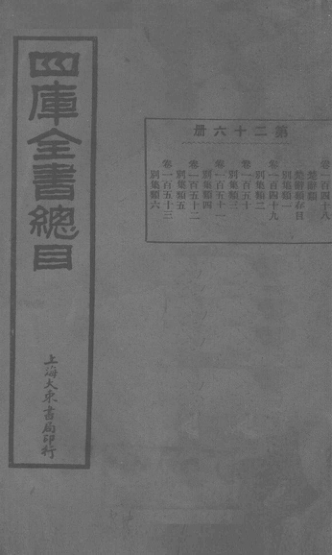 四庫全書總目
上海大東書局印行
第二十六册
卷一百四十八
楚辭類
楚辭類存目
別集類一
卷一百四十九
別集類二
卷一百五十
別集類三
卷一百五十一
別集類四
卷一百五十二
別集類五
卷一百五十三
別集類六